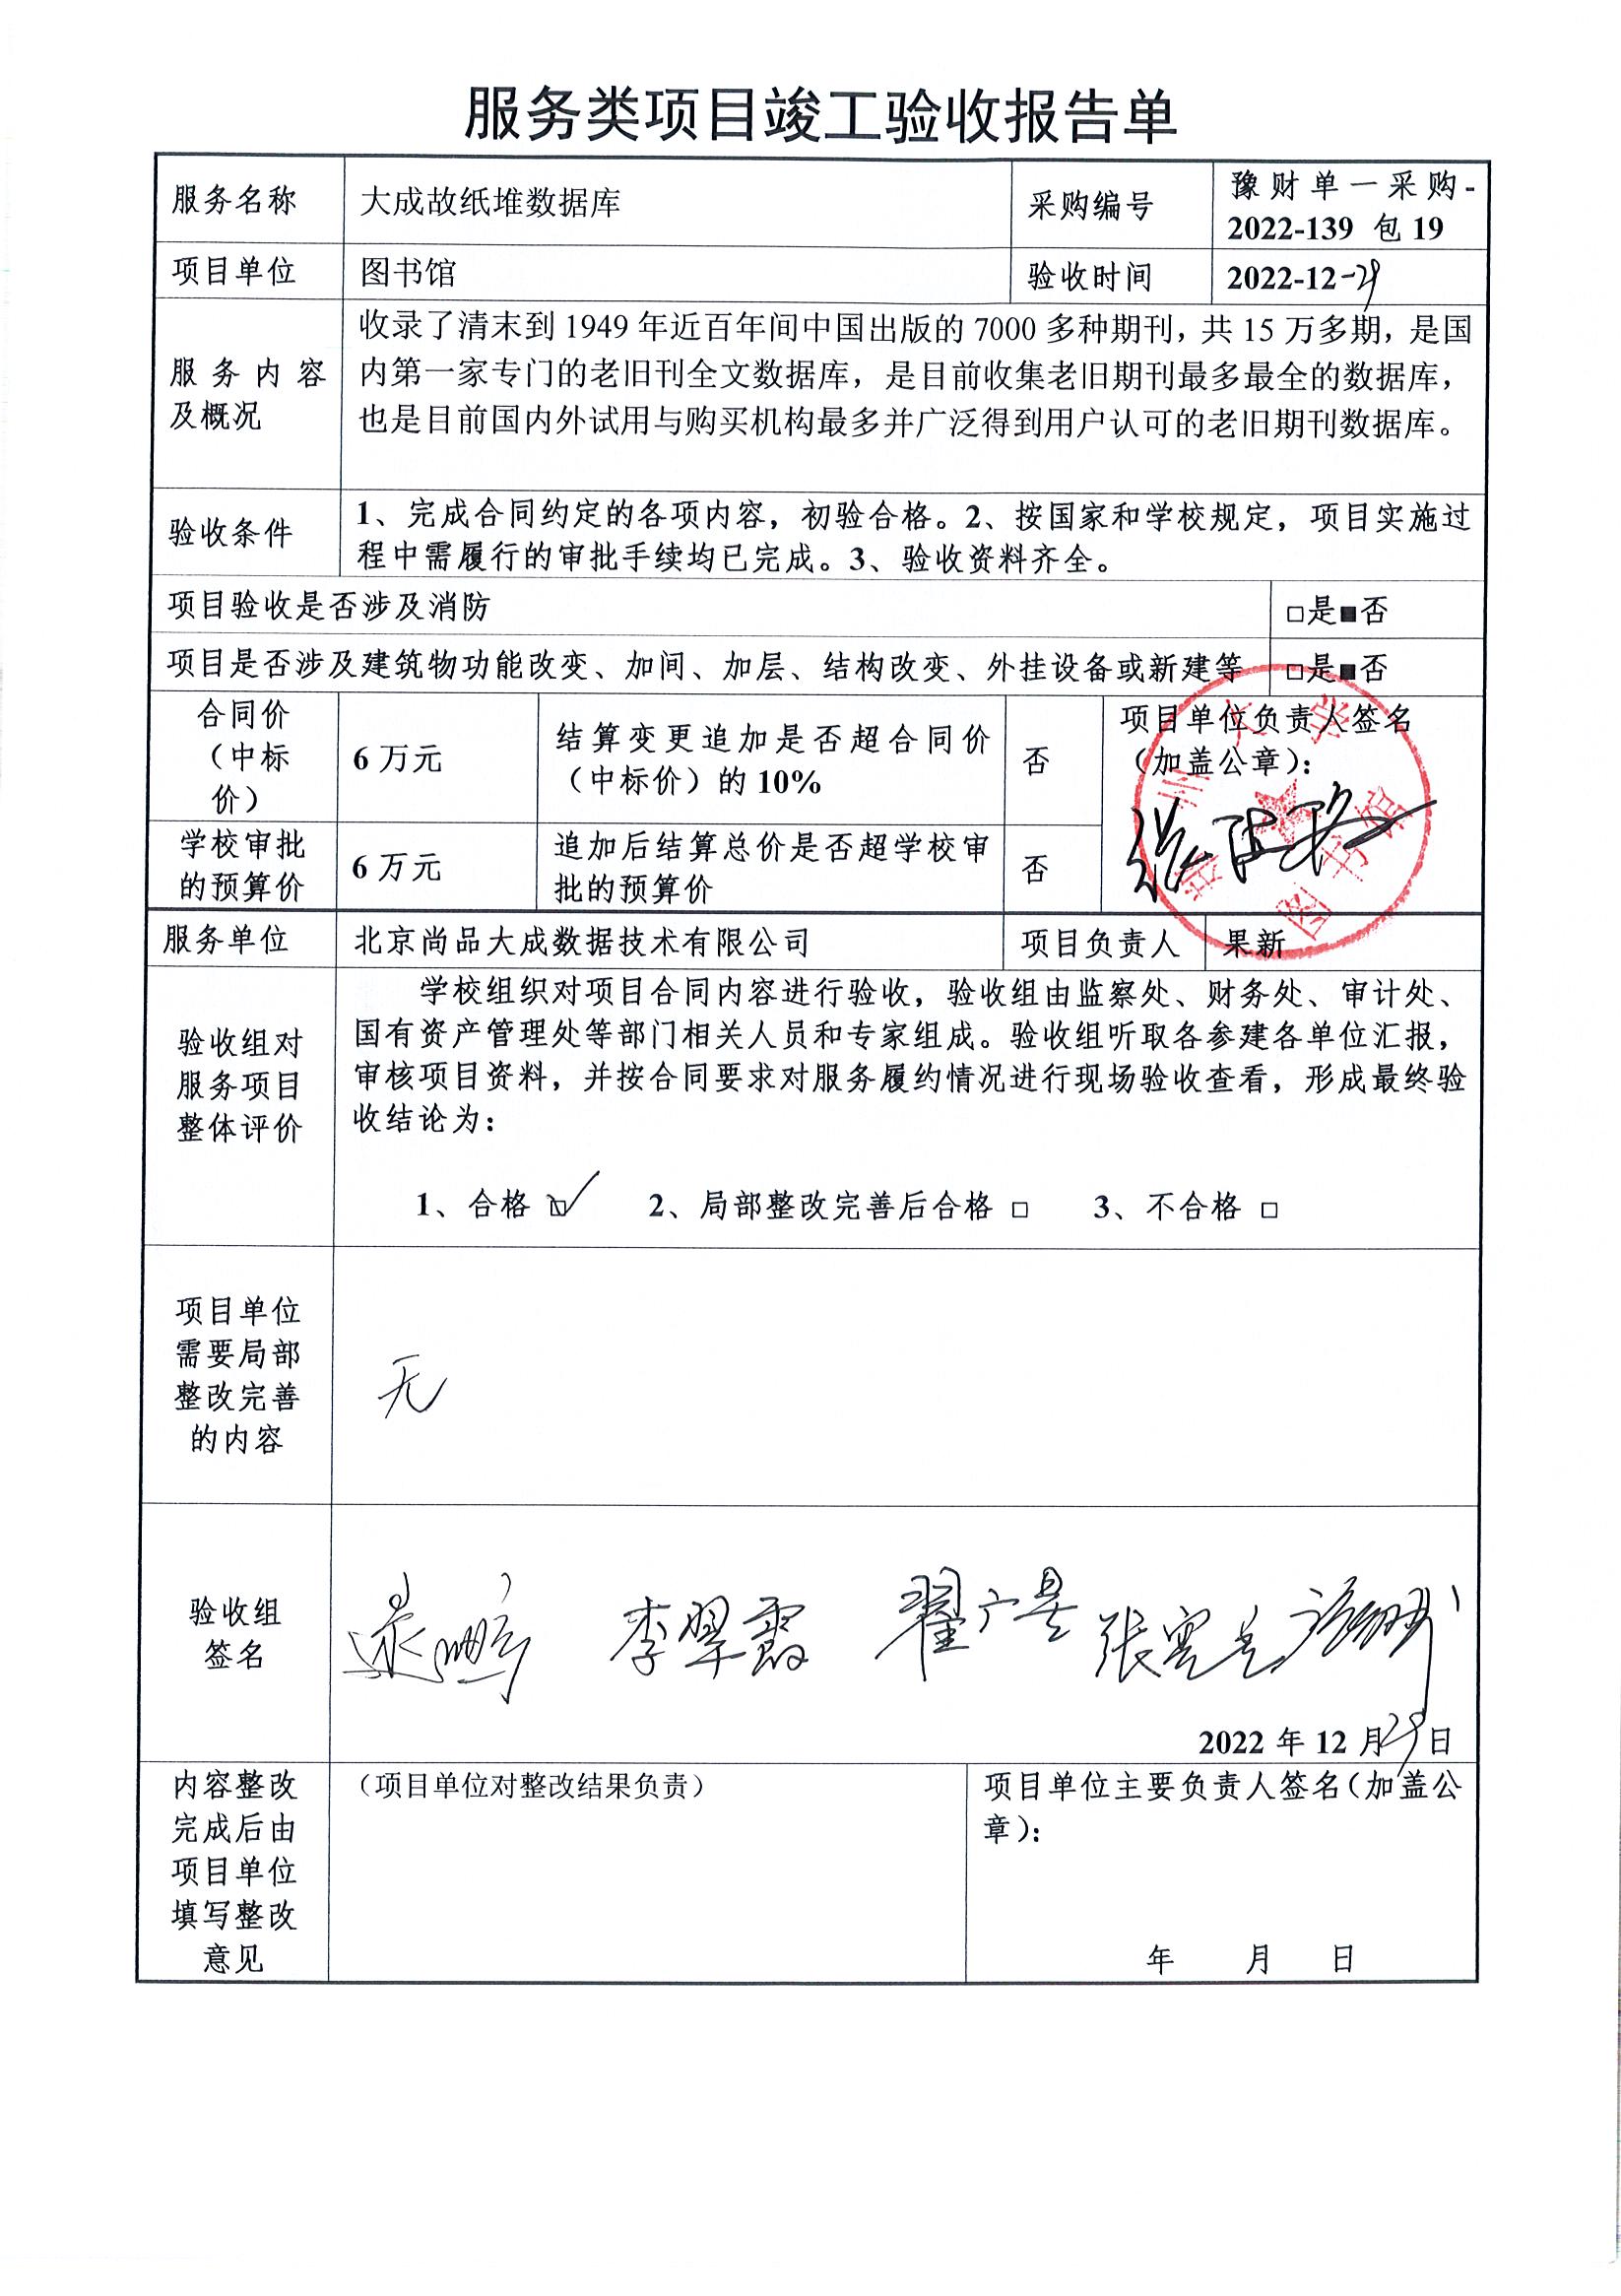 服务类项目竣工验收报告单
服务名称
大成故纸堆数据库
采购编号
豫财单一采购-
2022-139 包19
项目单位
图书馆
验收时间
2022-12-29
服务内容
及概况
收录了清末到1949年近百年间中国出版的7000多种期刊，共15万多期，是国
内第一家专门的老旧刊全文数据库，是目前收集老旧期刊最多最全的数据库，
也是目前国内外试用与购买机构最多并广泛得到用户认可的老旧期刊数据库。
验收条件
1、完成合同约定的各项内容，初验合格。2、按国家和学校规定，项目实施过
程中需履行的审批手续均已完成。3、验收资料齐全。
项目验收是否涉及消防
□是■否
项目是否涉及建筑物功能改变、加间、加层、结构改变、外挂设备或新建等
□是■否
合同价
（中标
价）
6万元
结算变更追加是否超合同价
（中标价）的10%
否
项目单位负责人签名
（加盖公章）：
学校审批
的预算价
6万元
追加后结算总价是否超学校审
批的预算价
否
图书馆
服务单位
北京尚品大成数据技术有限公司
项目负责人
果新
验收组对
服务项目
整体评价
学校组织对项目合同内容进行验收，验收组由监察处、财务处、审计处、
国有资产管理处等部门相关人员和专家组成。验收组听取各参建各单位汇报，
审核项目资料，并按合同要求对服务履约情况进行现场验收查看，形成最终验
收结论为：
1、合格 ☑ 2、局部整改完善后合格 □ 3、不合格 □
项目单位
需要局部
整改完善
的内容
无
验收组
签名
李翠霞 翟广昊
2022 年 12 月29日
内容整改
完成后由
项目单位
填写整改
意见
（项目单位对整改结果负责）
项目单位主要负责人签名（加盖公
章）：
年 月 日